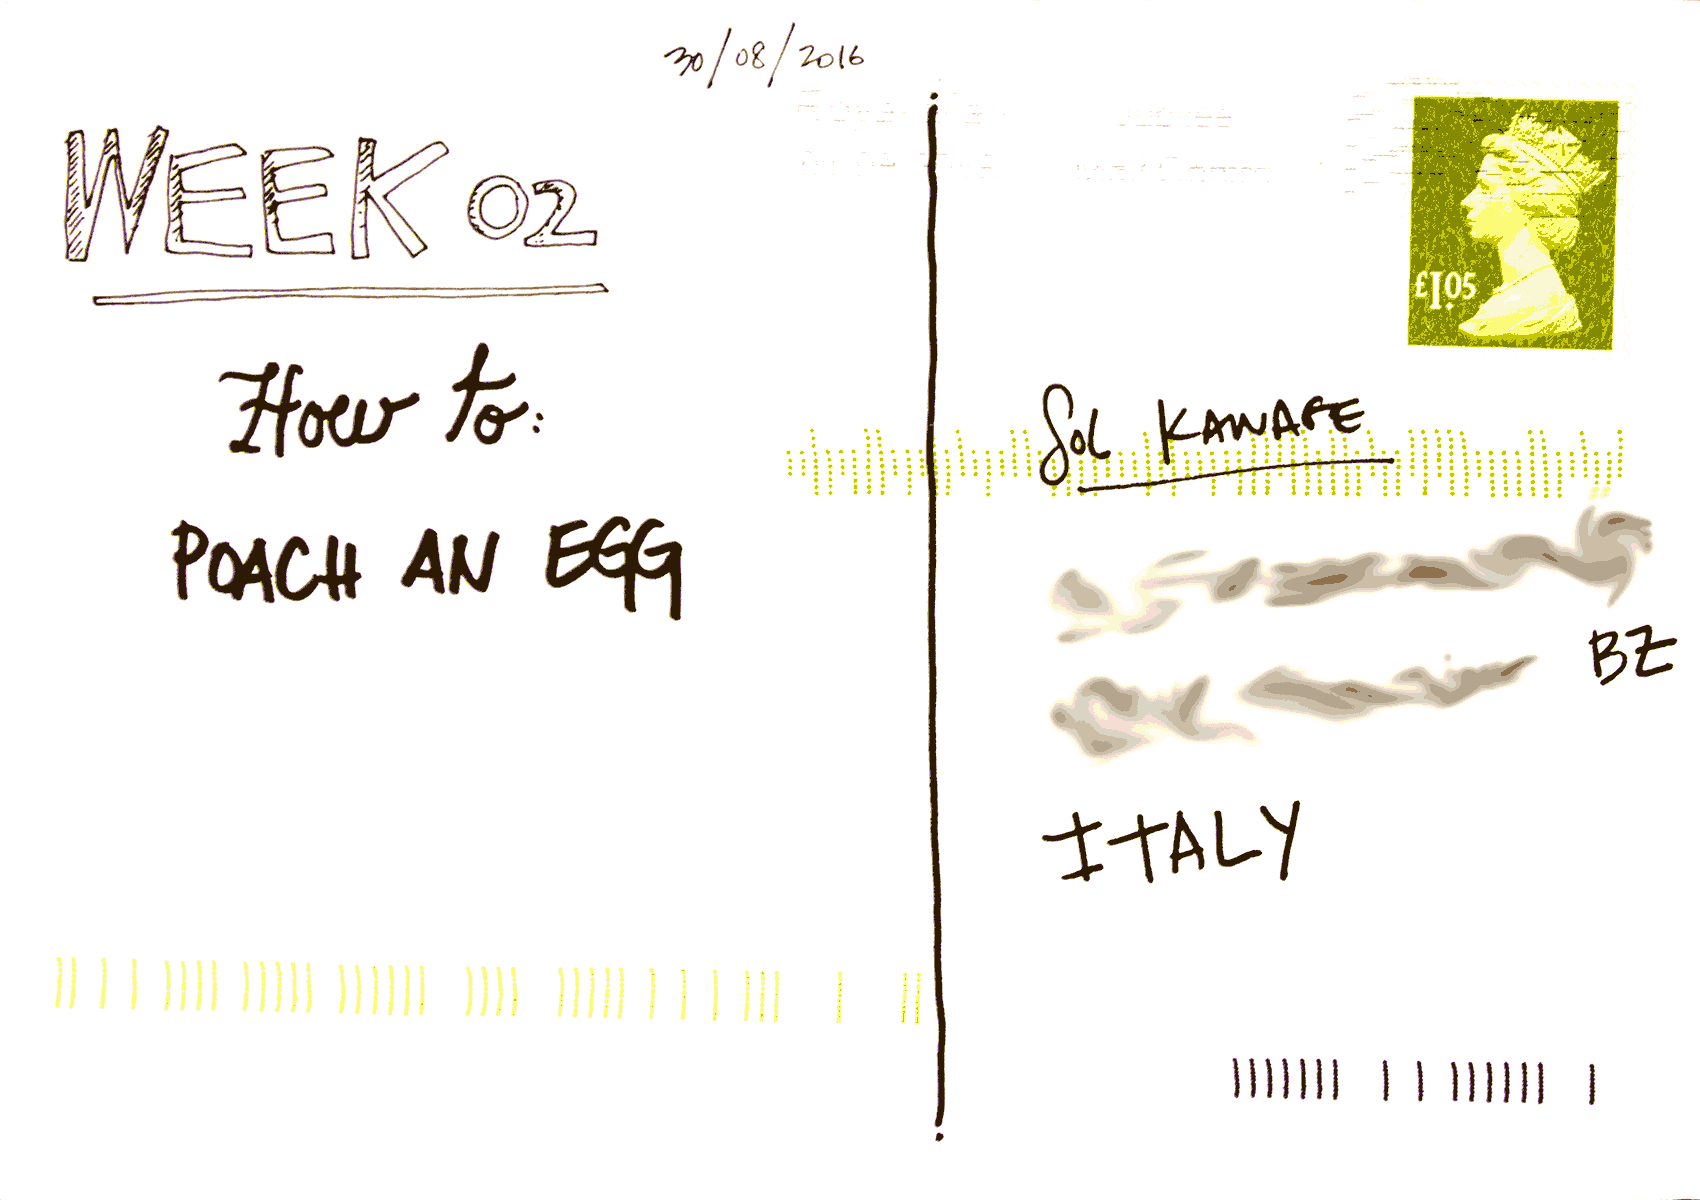 30/08/2016
WEEK 02
How to:
POACH AN EGG
£1.05
Sol KAWAGE
BZ
ITALY